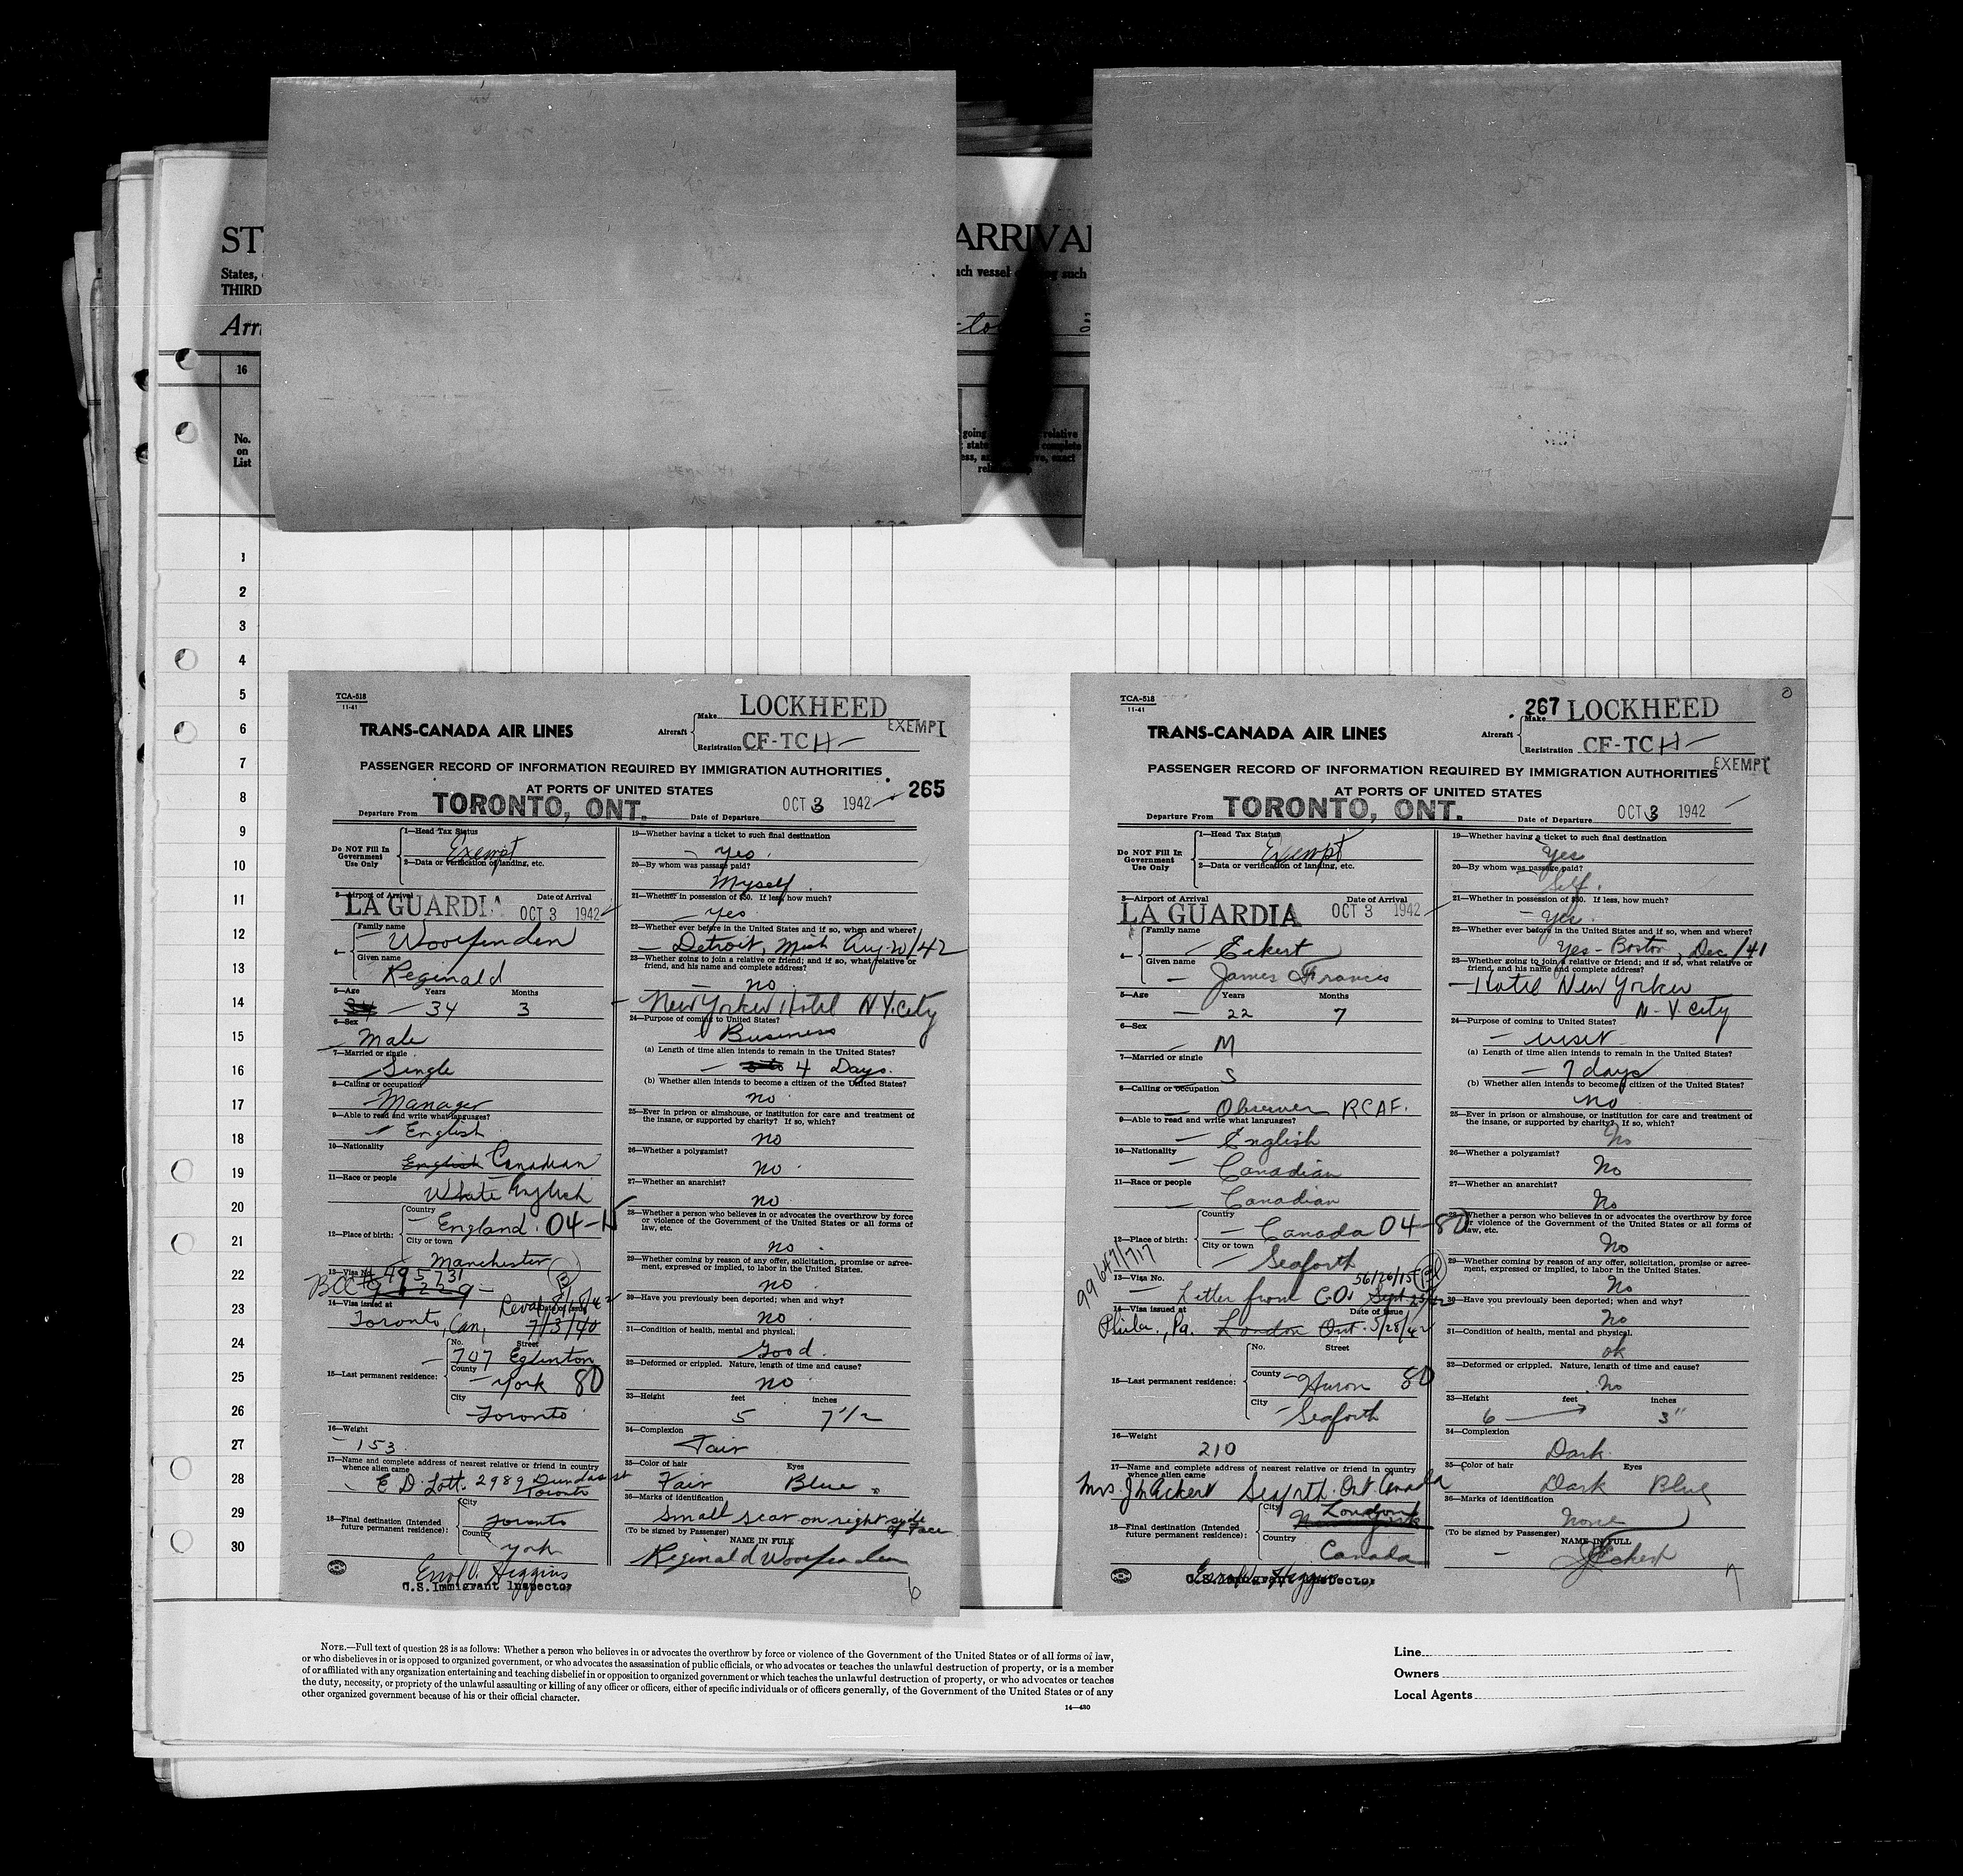 ST
ARRIVAL
States,
ach vessel
such
THIRD
Arri
16
No.
on
List
going
relative
state
complete
ess,
exact
1
2
3
4
5
6
7
8
9
10
11
12
13
14
15
16
17
18
19
20
21
22
23
24
25
26
27
28
29
30
TCA-518
11-41
TRANS-CANADA AIR LINES
Aircraft
Make LOCKHEED
Registration CF-TCH
EXEMPT
PASSENGER RECORD OF INFORMATION REQUIRED BY IMMIGRATION AUTHORITIES
AT PORTS OF UNITED STATES
265
Departure From TORONTO, ONT.
Date of Departure OCT 3 1942
Do NOT Fill In
Government
Use Only
1—Head Tax Status
Exempt
2—Data or verification of landing, etc.
3—Airport of Arrival
Date of Arrival
LA GUARDIA OCT 3 1942
4—
Family name
Woolfenden
Given name
Reginald
5—Age Years Months
34 34 3
6—Sex
Male
7—Married or single
Single
8—Calling or occupation
Manager
9—Able to read and write what languages?
English
10—Nationality
English Canadian
11—Race or people
White English
12—Place of birth:
Country
England. 04-
City or town
Manchester
13—Visa No.
14—Visa issued at
Date of Issue
Toronto, Can, 7/3/40
15—Last permanent residence:
No. Street
707 Eglinton
County
York 80
City
Toronto
16—Weight
153
17—Name and complete address of nearest relative or friend in country
whence alien came
E D. Lott. 2989 Dundas st
Toronto
18—Final destination (Intended
future permanent residence):
City
Toronto
County
York
Errol V. Higgins
U.S. Immigrant Inspector
19—Whether having a ticket to such final destination
yes.
20—By whom was passage paid?
Myself.
21—Whether in possession of $50. If less, how much?
yes
22—Whether ever before in the United States and if so, when and where?
Detroit, Mich Aug 20/42
23—Whether going to join a relative or friend; and if so, what relative or
friend, and his name and complete address?
no
New Yorker Hotel N.Y. City
24—Purpose of coming to United States?
Business
(a) Length of time alien intends to remain in the United States?
4 Days.
(b) Whether alien intends to become a citizen of the United States?
no
25—Ever in prison or almshouse, or institution for care and treatment of
the insane, or supported by charity? If so, which?
no
26—Whether a polygamist?
no.
27—Whether an anarchist?
no
28—Whether a person who believes in or advocates the overthrow by force
or violence of the Government of the United States or all forms of
law, etc.
no.
29—Whether coming by reason of any offer, solicitation, promise or agree-
ment, expressed or implied, to labor in the United States.
no.
30—Have you previously been deported; when and why?
no.
31—Condition of health, mental and physical.
Good.
32—Deformed or crippled. Nature, length of time and cause?
no
33—Height feet inches
5 7 1/2
34—Complexion
Fair
35—Color of hair Eyes
Fair Blue
36—Marks of identification
Small scar on right side
of Face
(To be signed by Passenger)
NAME IN FULL
Reginald Woolfenden
6
TCA-518
11-41
TRANS-CANADA AIR LINES
267
Aircraft
Make LOCKHEED
Registration CF-TCH
EXEMPT
PASSENGER RECORD OF INFORMATION REQUIRED BY IMMIGRATION AUTHORITIES
AT PORTS OF UNITED STATES
Departure From TORONTO, ONT.
Date of Departure OCT 3 1942
Do NOT Fill In
Government
Use Only
1—Head Tax Status
Exempt
2—Data or verification of landing, etc.
3—Airport of Arrival
Date of Arrival
LA GUARDIA OCT 3 1942
4—
Family name
Eckert
Given name
James Frances
5—Age Years Months
22 7
6—Sex
M
7—Married or single
S
8—Calling or occupation
Observer RCAF.
9—Able to read and write what languages?
English
10—Nationality
Canadian
11—Race or people
Canadian
12—Place of birth:
Country
Canada 04-80
City or town
Seaforth
99647/717
13—Visa No.
Letter from C.O. Sept 25/42
14—Visa issued at
Date of Issue
Phila., Pa. London Ont. 5/28/42
15—Last permanent residence:
No. Street
County
Huron 80
City
Seaforth
16—Weight
210
17—Name and complete address of nearest relative or friend in country
whence alien came
Mrs. J M Eckert Seaforth. Ont Canada
18—Final destination (Intended
future permanent residence):
City
London
New York
Country
Canada
Errol V. Higgins
U.S. Immigrant Inspector
19—Whether having a ticket to such final destination
Yes
20—By whom was passage paid?
Self.
21—Whether in possession of $50. If less, how much?
Yes.
22—Whether ever before in the United States and if so, when and where?
Yes - Boston, Dec/41
23—Whether going to join a relative or friend; and if so, what relative or
friend, and his name and complete address?
Hotel New Yorker
N-Y. City
24—Purpose of coming to United States?
Visit
(a) Length of time alien intends to remain in the United States?
7 days
(b) Whether alien intends to become citizen of the United States?
no
25—Ever in prison or almshouse, or institution for care and treatment of
the insane, or supported by charity? If so, which?
No
26—Whether a polygamist?
No
27—Whether an anarchist?
No
28—Whether a person who believes in or advocates the overthrow by force
or violence of the Government of the United States or all forms of
law, etc.
No
29—Whether coming by reason of any offer, solicitation, promise or agree-
ment, expressed or implied, to labor in the United States.
No
30—Have you previously been deported; when and why?
No
31—Condition of health, mental and physical.
ok
32—Deformed or crippled. Nature, length of time and cause?
No
33—Height feet inches
6 3"
34—Complexion
Dark
35—Color of hair Eyes
Dark Blue
36—Marks of identification
None
(To be signed by Passenger)
NAME IN FULL
J Eckert
7
NOTE.—Full text of question 28 is as follows: Whether a person who believes in or advocates the overthrow by force or violence of the Government of the United States or of all forms of law,
or who disbelieves in or is opposed to organized government, or who advocates the assassination of public officials, or who advocates or teaches the unlawful destruction of property, or is a member
of or affiliated with any organization entertaining and teaching disbelief in or opposition to organized government or which teaches the unlawful destruction of property, or who advocates or teaches
the duty, necessity, or propriety of the unlawful assaulting or killing of any officer or officers, either of specific individuals or of officers generally, of the Government of the United States or of any
other organized government because of his or their official character.
14—430
Line
Owners
Local Agents